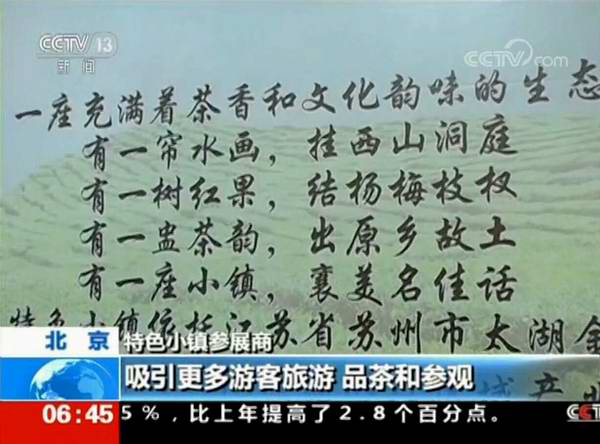 CCTV 13
新闻
CCTV.com
一座充满着茶香和文化韵味的生态
有一帘水画，挂西山洞庭
有一树红果，结杨梅枝权
有一盅茶韵，出原乡故土
有一座小镇，襄美名佳话
特色小镇依托江苏省苏州市太湖
北京
特色小镇参展商
吸引更多游客旅游 品茶和参观
06:45
5%，比上年提高了2.8个百分点。
CCT